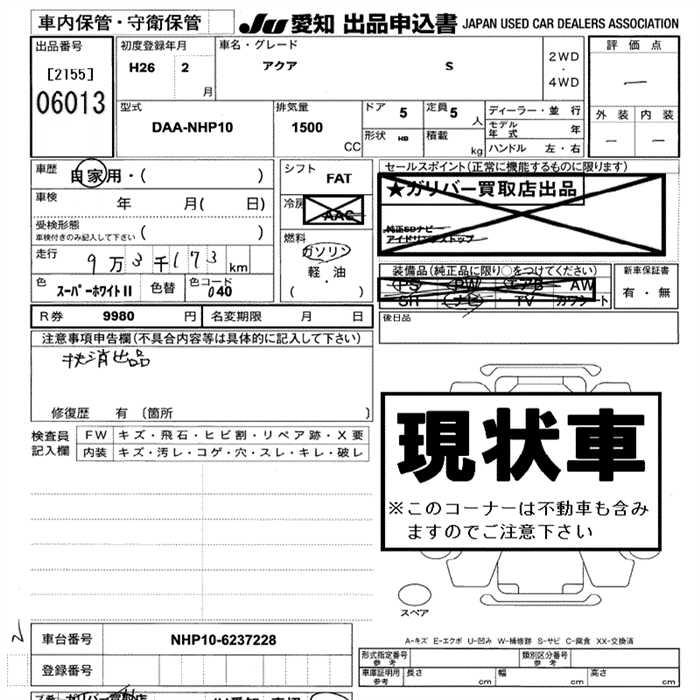 車内保管・守衛保管 JU 愛知 出品申込書 JAPAN USED CAR DEALERS ASSOCIATION
出品番号 初度登録年月 車名・グレード 評価点
[2155] H26 2 月 アクア S 2WD・4WD
06013
型式 排気量 ドア 5 定員 5 人 ディーラー・並行 外装 内装
DAA-NHP10 1500 CC 形状 HB 積載 kg モデル年式 年
ハンドル 左・右
車歴 自家用・( ) シフト FAT セールスポイント(正常に機能するものに限ります)
車検 年 月( 日) 冷房 AAC ★ガリバー買取店出品
受検形態 ( )
車検付きのみ記入して下さい
純正SDナビー
アイドリングストップ
燃料 ガソリン
軽・油
( )
走行 9万3千173km
色 スーパーホワイトII 色替 色コード 040
装備品(純正品に限り○をつけてください) 新車保証書
PS PW エアB AW 有・無
SR ナビ・TV カワシート
R券 9980 円 名変期限 月 日 後日品
注意事項申告欄(不具合内容等は具体的に記入して下さい)
抹消出品
修復歴 有 〔箇所 〕
現状車
※このコーナーは不動車も含み
ますのでご注意下さい
検査員記入欄 FW キズ・飛石・ヒビ割・リペア跡・X要
内装 キズ・汚レ・コゲ・穴・スレ・キレ・破レ
スペア
A-キズ E-エクボ U-凹み W-補修跡 S-サビ C-腐食 XX-交換済
車台番号 NHP10-6237228
形式指定番号 参考 類別区分番号 参考
登録番号 車庫証明用 参考 長さ cm 幅 cm 高さ cm
ガリバー買取店